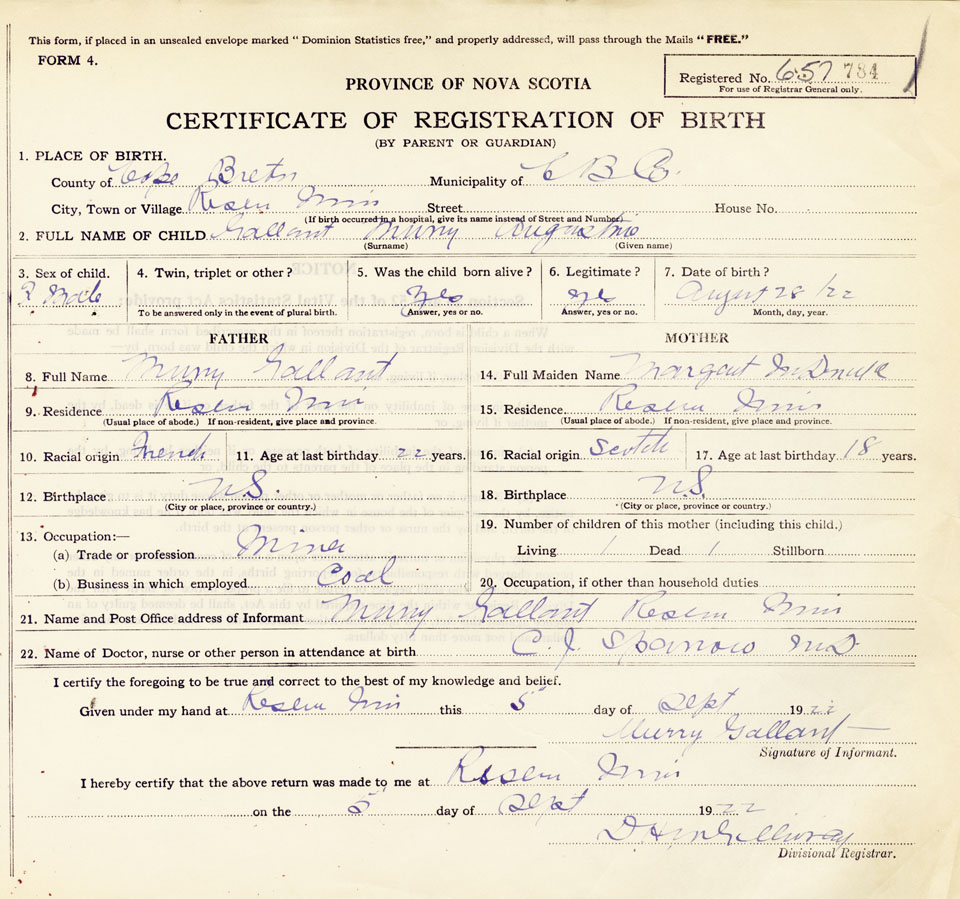 This form, if placed in an unsealed envelope marked "Dominion Statistics free," and properly addressed, will pass through the Mails "FREE."
FORM 4.
Registered No. 657 784
For use of Registrar General only.
PROVINCE OF NOVA SCOTIA
CERTIFICATE OF REGISTRATION OF BIRTH
(BY PARENT OR GUARDIAN)
1. PLACE OF BIRTH.
County of Cape Breton Municipality of C B Co.
City, Town or Village Reserve Mines Street House No.
(If birth occurred in a hospital, give its name instead of Street and Number)
2. FULL NAME OF CHILD Gallant Murry Augustine
(Surname) (Given name)
3. Sex of child. 4. Twin, triplet or other? 5. Was the child born alive? 6. Legitimate? 7. Date of birth?
Male Yes yes August 28/22
To be answered only in the event of plural birth. (Answer, yes or no. Answer, yes or no. Month, day, year.
FATHER MOTHER
8. Full Name Murry Gallant 14. Full Maiden Name Margaret
9. Residence Reserve Mines 15. Residence Reserve Mines
(Usual place of abode.) If non-resident, give place and province. (Usual place of abode.) If non-resident, give place and province.
10. Racial origin French 11. Age at last birthday 22 years. 16. Racial origin Scotch 17. Age at last birthday 18 years.
12. Birthplace N.S. 18. Birthplace N.S.
(City or place, province or country.) (City or place, province or country.)
13. Occupation:— 19. Number of children of this mother (including this child.)
(a) Trade or profession Miner Living 1 Dead 1 Stillborn
(b) Business in which employed Coal 20. Occupation, if other than household duties
21. Name and Post Office address of Informant Murry Gallant Reserve Mines
22. Name of Doctor, nurse or other person in attendance at birth C. J. Sparrow M.D
I certify the foregoing to be true and correct to the best of my knowledge and belief.
Given under my hand at Reserve Mines this 5 day of Sept 1922
Murry Gallant
Signature of Informant.
I hereby certify that the above return was made to me at Reserve Mines
on the 5 day of Sept 1922
Divisional Registrar.